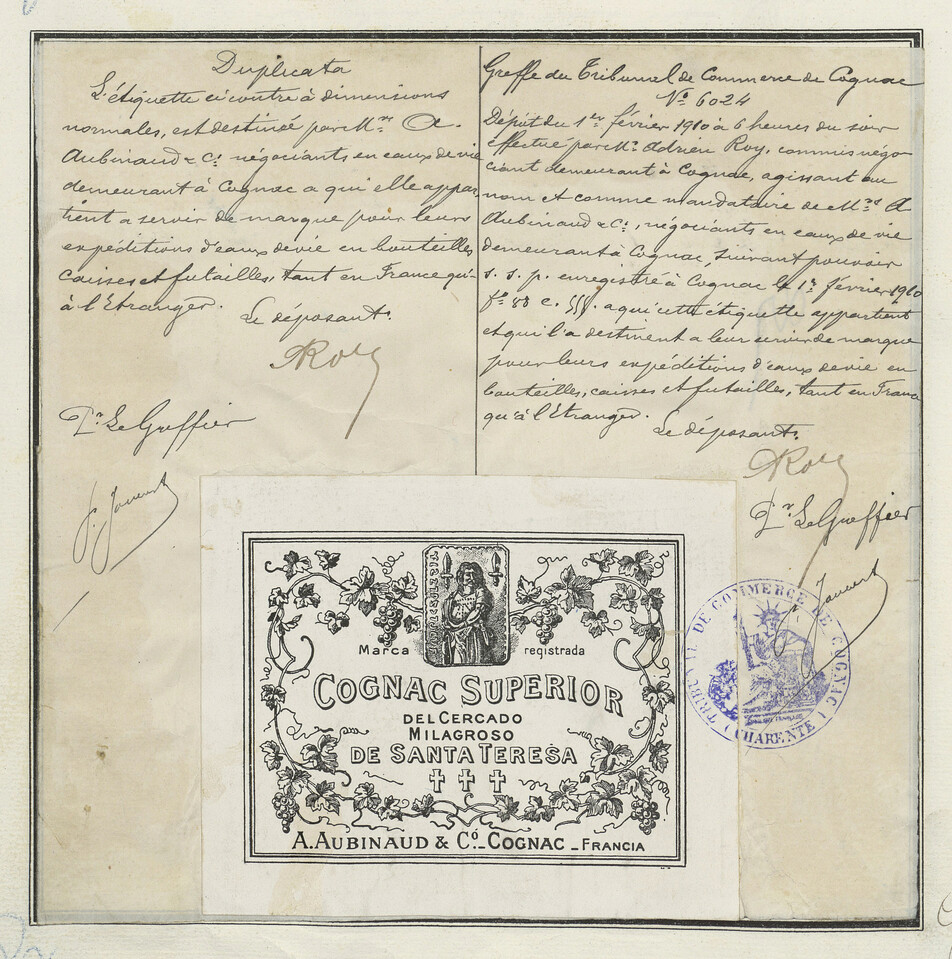 Duplicata
L'étiquette ci contre à dimensions
normales, est destinée par M.rs A.
Aubinaud & C.ie négociants en eaux de vie
demeurant à Cognac a qui elle appar-
tient a servir de marque pour leurs
expéditions d'eaux de vie en bouteilles
caisses et futailles, tant en France qu'
à l'Etranger.
Le déposant.
ARoy
Pr. Le Greffier
Greffe du Tribunal de Commerce de Cognac
No. 6024
Dépôt du 1er février 1910 à 6 heures du soir
effectué par M. Adrien Roy, commis négo-
ciant demeurant à Cognac, agissant au
nom et comme mandataire de M.rs A
Aubinaud & C.ie, négociants en eaux de vie
demeurant à Cognac, suivant pouvoir
s. s. p. enregistré à Cognac le 1er février 1910
fo 88 c. a qui cette étiquette appartient
et qui l'a destinent a leur servir de marque
pour leurs expéditions d'eaux de vie en
bouteilles, caisses et futailles, tant en France
qu'à l'Etranger.
Le déposant.
ARoy
Pr. Le Greffier
TRIBUNAL DE COMMERCE DE COGNAC
(CHARENTE)
Marca registrada
COGNAC SUPERIOR
DEL CERCADO
MILAGROSO
DE SANTA TERESA
A. AUBINAUD & Co. - COGNAC - FRANCIA